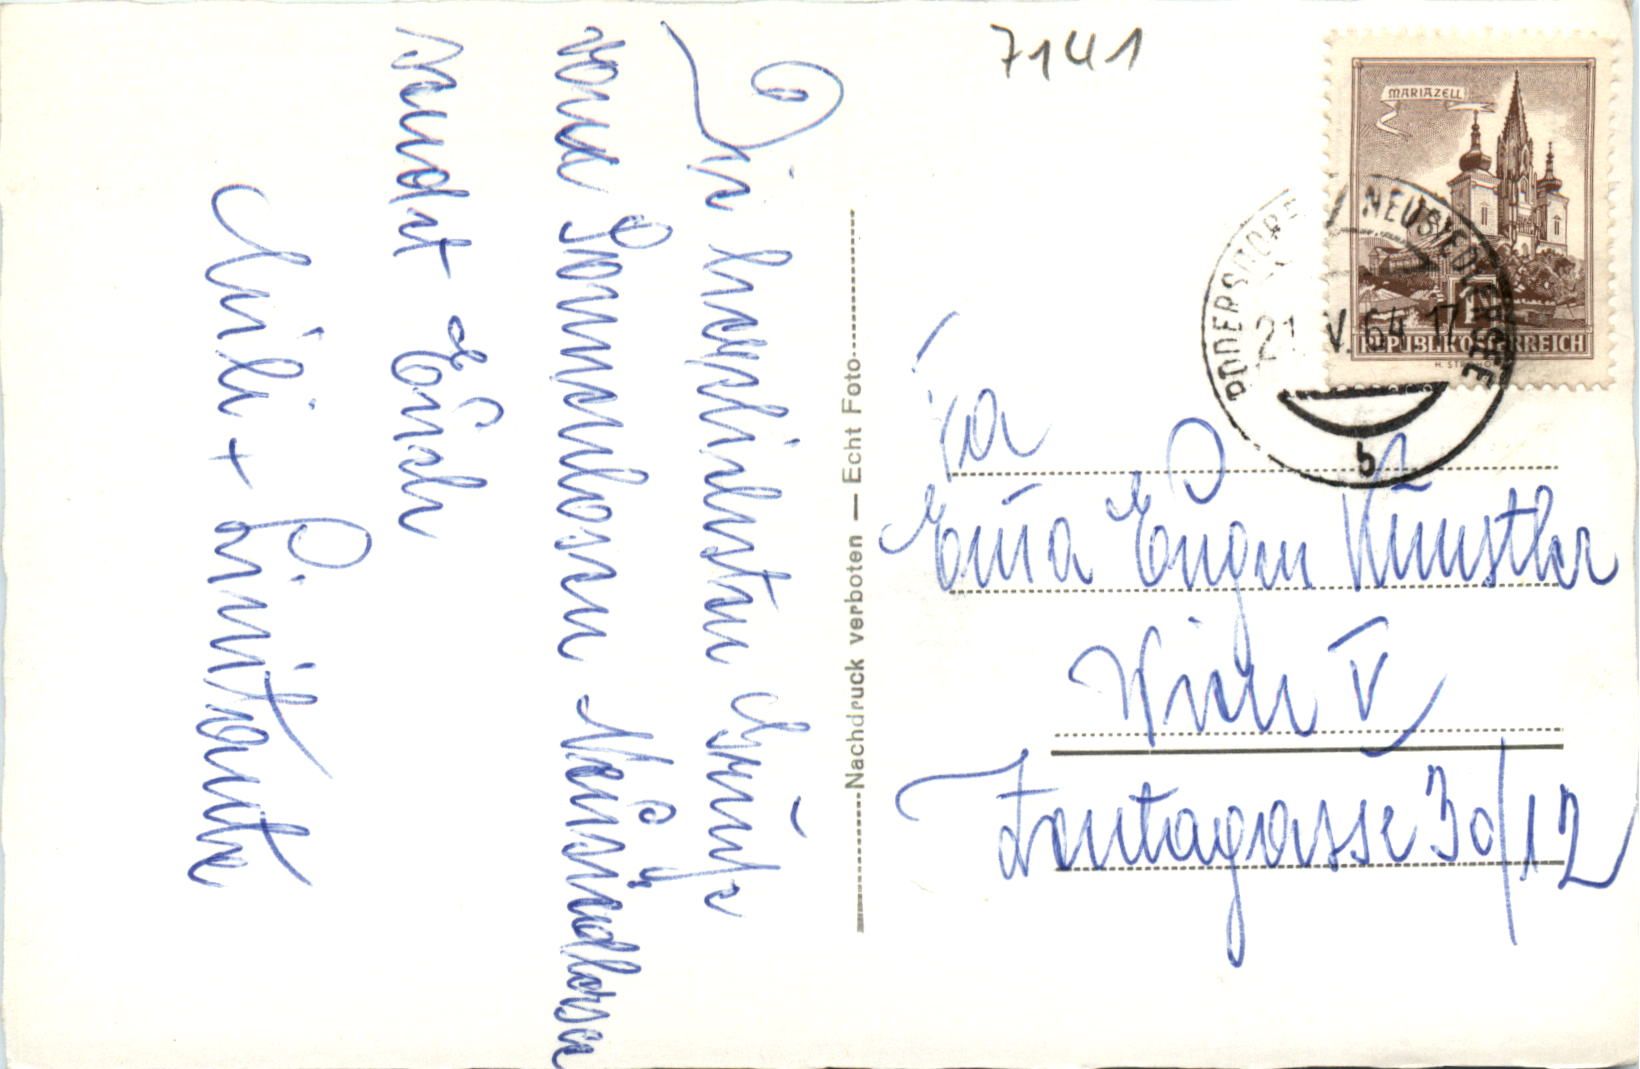 7141
MARIAZELL
REPUBLIK ÖSTERREICH
PODERSDORF / NEUSIEDLERSEE
21. V. 64 17
b
Die herzlichsten Grüße
vom
Neusiedlersee
sendet Euch
+ Linitante
Nachdruck verboten — Echt Foto
Fa
Eugen Künstler
Wien V
Zentagasse 30/12